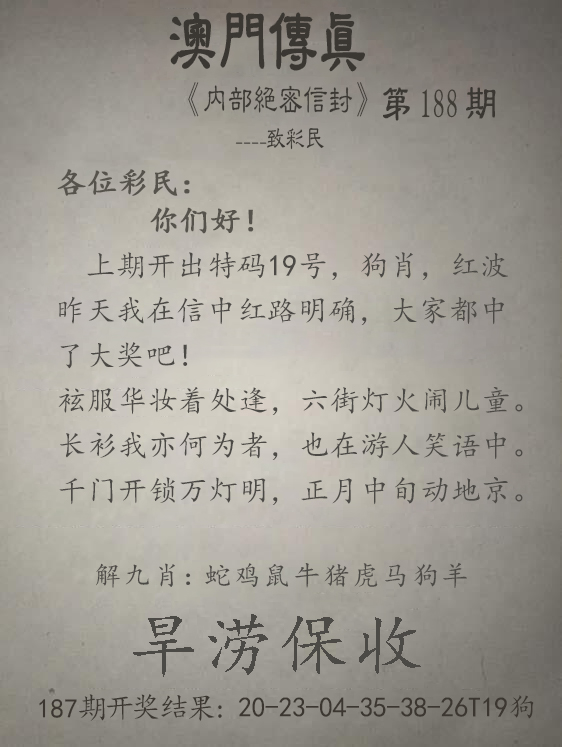 澳門傳真
《内部絕密信封》第188期
----致彩民
各位彩民：
你们好！
上期开出特码19号，狗肖，红波
昨天我在信中红路明确，大家都中
了大奖吧！
袨服华妆着处逢，六街灯火闹儿童。
长衫我亦何为者，也在游人笑语中。
千门开锁万灯明，正月中旬动地京。
解九肖：蛇鸡鼠牛猪虎马狗羊
旱涝保收
187期开奖结果：20-23-04-35-38-26T19狗